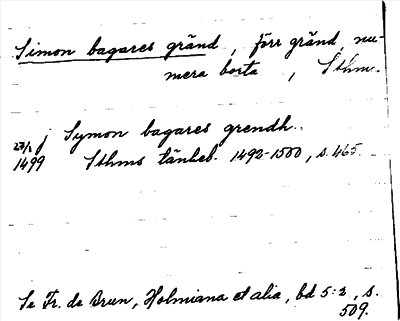 Simon bagares gränd, förr gränd, nu-
mera borta, Sthm.
j Symon bagares grendh.
1499 Sthms tänkeb. 1492-1500, s. 465.
Se Fr. de Brun, Holmiana et alia, bd 5:2, s.
509.